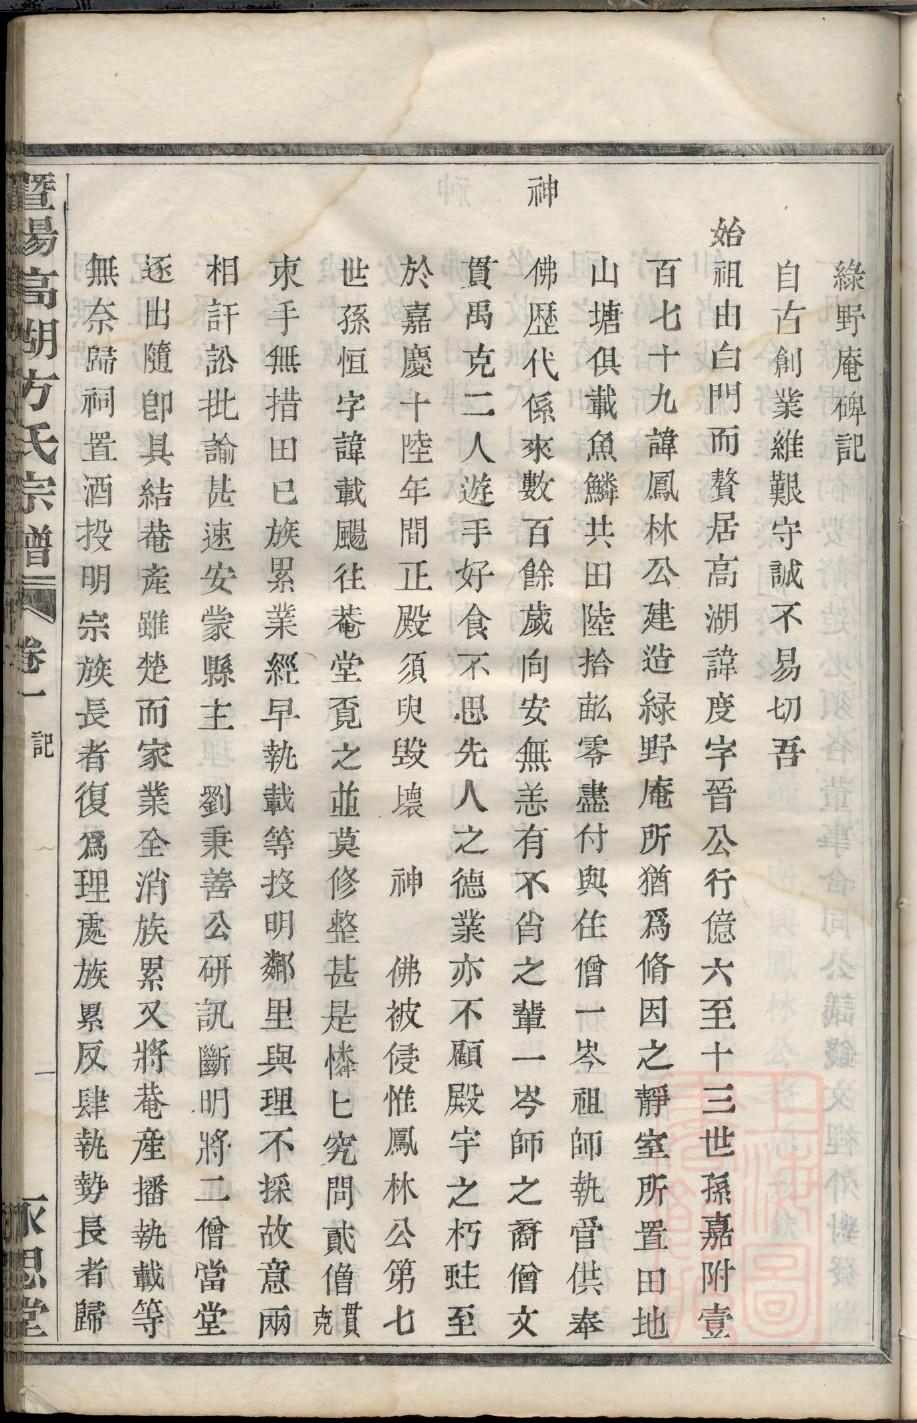 綠野庵碑記
自古創業維艱守誠不易切吾
始祖由白門而贅居高湖諱度字晉公行億六至十三世孫嘉附壹
百七十九諱鳳林公建造緑野庵所猶爲脩因之靜室所置田地
山塘俱載魚鱗共田陸拾畝零盡付與住僧一岑祖師執管供奉
神
佛歴代係來數百餘歲向安無恙有不肖之輩一岑師之裔僧文
貫禹克二人遊手好食不思先人之德業亦不顧殿宇之朽蛀至
於嘉慶十陸年間正殿須臾毀壞 神 佛被侵惟鳳林公第七
世孫恒字諱載颺徃菴堂覔之並莫修整甚是憐匕究問貳僧貫克
朿手無措田已族累業經早執載等投明鄰里與理不採故意兩
相訐訟批諭甚速安蒙縣主 劉秉善公研訊斷明將二僧當堂
逐出隨卽具結菴產雖楚而家業全消族累又將菴産播執載等
無奈歸祠置酒投明宗族長者復爲理處族累反肆執勢長者歸
暨陽高湖方氏宗譜 卷一 記 一 永思堂